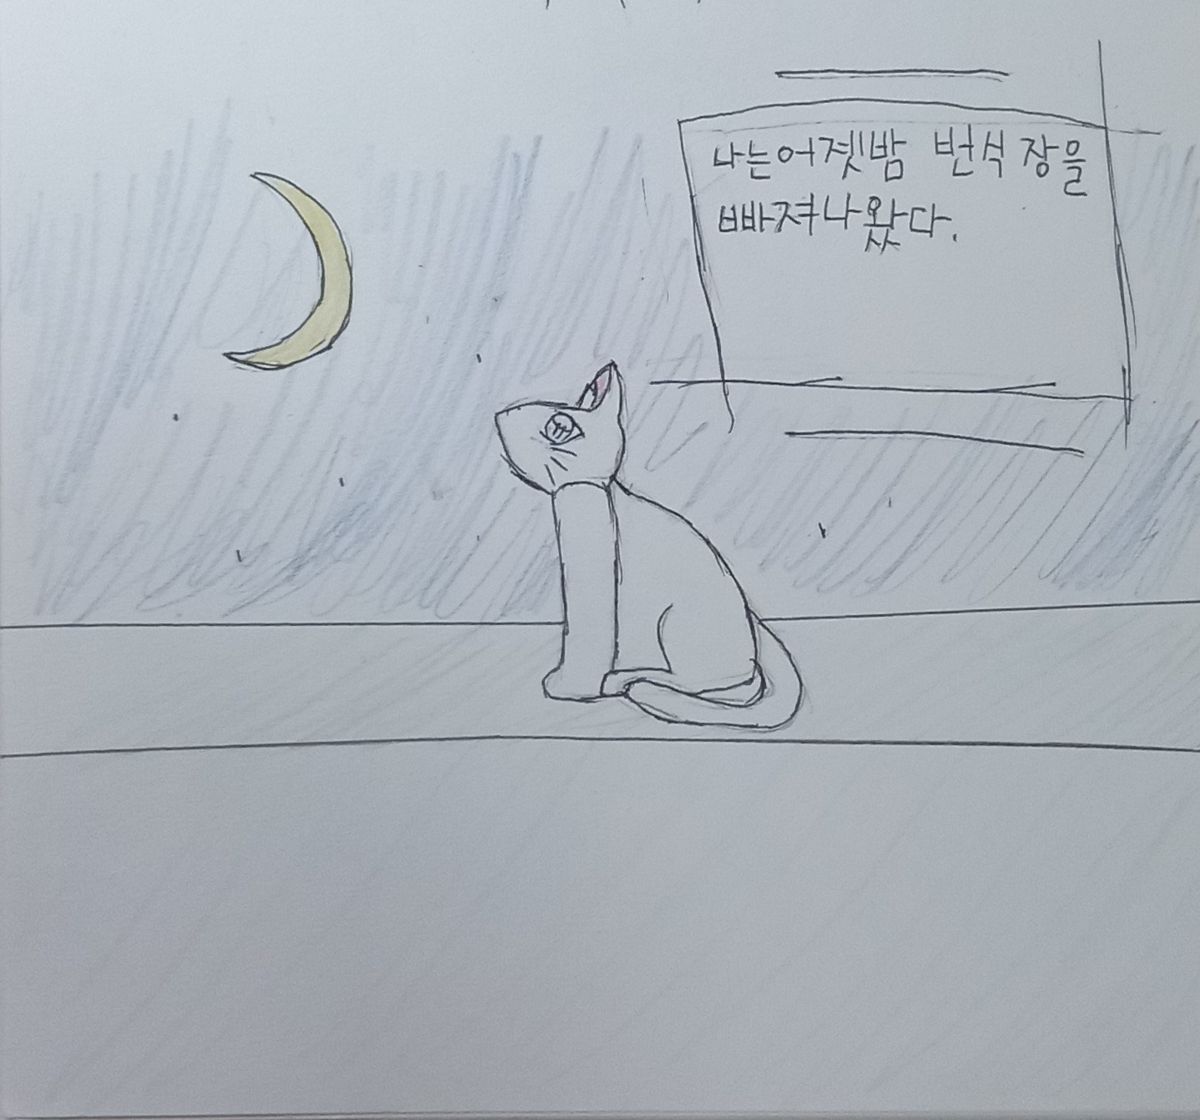 나는어젯밤 번식장을
빠져나왔다.